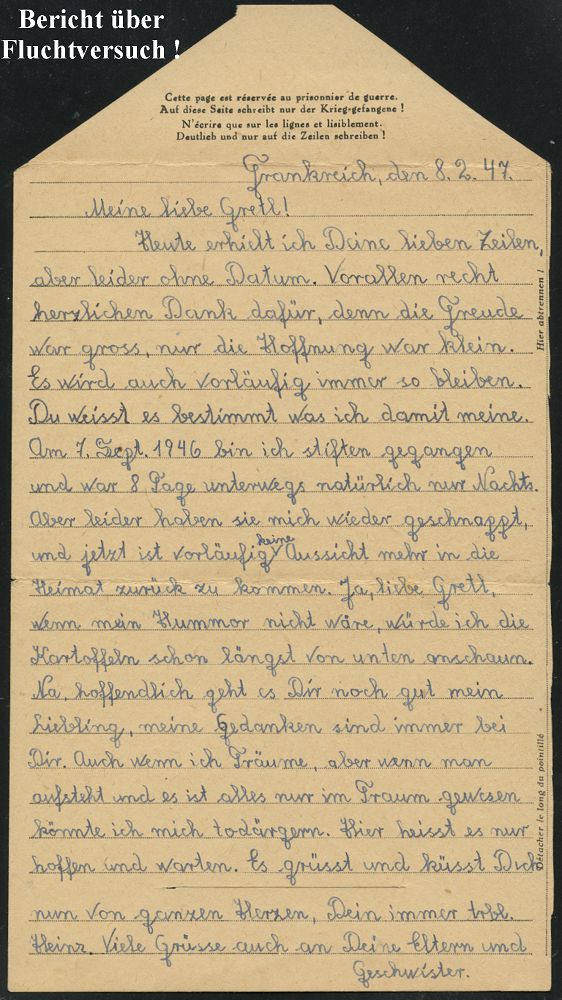 Bericht über
Fluchtversuch !
Cette page est réservée au prisonnier de guerre.
Auf diese Seite schreibt nur der Krieg-gefangene !
N'écrire que sur les lignes et lisiblement.
Deutlich und nur auf die Zeilen schreiben !
Frankreich, den 8. 2. 47.
Meine liebe Gretl!
Heute erhielt ich Deine lieben Zeilen,
aber leider ohne Datum. Vorallen recht
herzlichen Dank dafür, denn die Freude
war gross, nur die Hoffnung war klein.
Es wird auch vorläufig immer so bleiben.
Du weisst es bestimmt was ich damit meine.
Am 7. Sept. 1946 bin ich stiften gegangen
und war 8 Tage unterwegs natürlich nur Nachts.
Aber leider haben sie mich wieder geschnappt,
und jetzt ist vorläufig keine Aussicht mehr in die
Heimat zurück zu kommen. Ja, liebe Gretl,
wenn mein Hummor nicht wäre, würde ich die
Kartoffeln schon längst von unten anschaun.
Na, hoffendlich geht es Dir noch gut mein
Liebling, meine Gedanken sind immer bei
Dir. Auch wenn ich Träume, aber wenn man
aufsteht und es ist alles nur im Traum gewesen
könnte ich mich todärgern. Hier heisst es nur
hoffen und warten. Es grüsst und küsst Dich
nun von ganzen Herzen, Dein immer trbl.
Heinz. Viele Grüsse auch an Deine Eltern und
Geschwister.
Hier abtrennen !
Détacher le long du pointillé